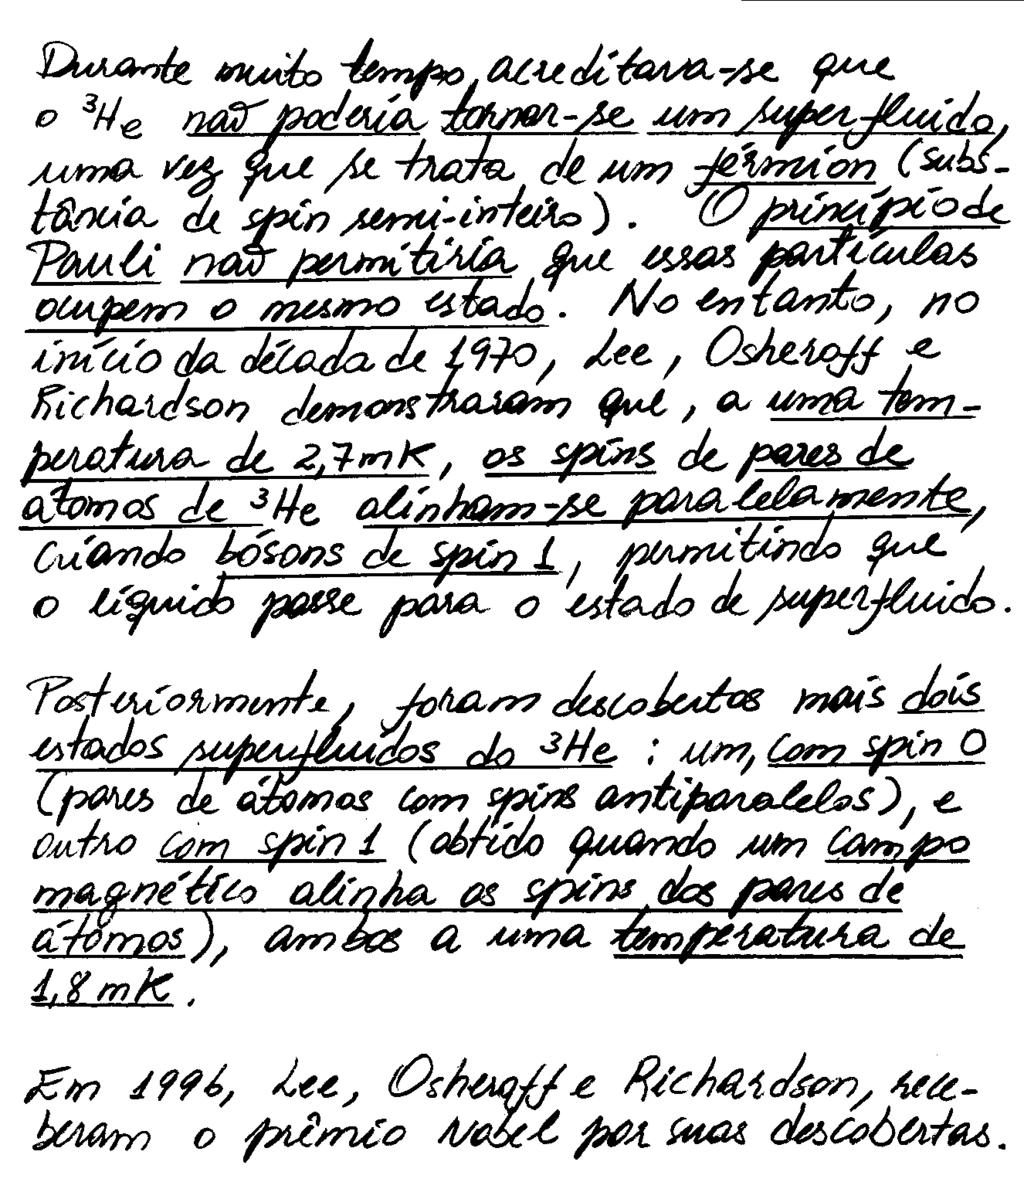 Durante muito tempo, acreditava-se que
o ³He não poderia tornar-se um superfluido,
uma vez que se trata de um férmion (subs-
tância de spin semi-inteiro). O princípio de
Pauli não permitiria que essas partículas
ocupem o mesmo estado. No entanto, no
início da década de 1970, Lee, Osheroff e
Richardson demonstraram que, a uma tem-
peratura de 2,7mK, os spins de pares de
átomos de ³He alinham-se paralelamente,
criando bósons de spin 1, permitindo que
o líquido passe para o estado de superfluido.
Posteriormente, foram descobertos mais dois
estados superfluidos do ³He : um, com spin 0
(pares de átomos com spins antiparalelos), e
outro com spin 1 (obtido quando um campo
magnético alinha os spins dos pares de
átomos), ambos a uma temperatura de
1,8 mK.
Em 1996, Lee, Osheroff e Richardson, rece-
beram o prêmio Nobel por suas descobertas.